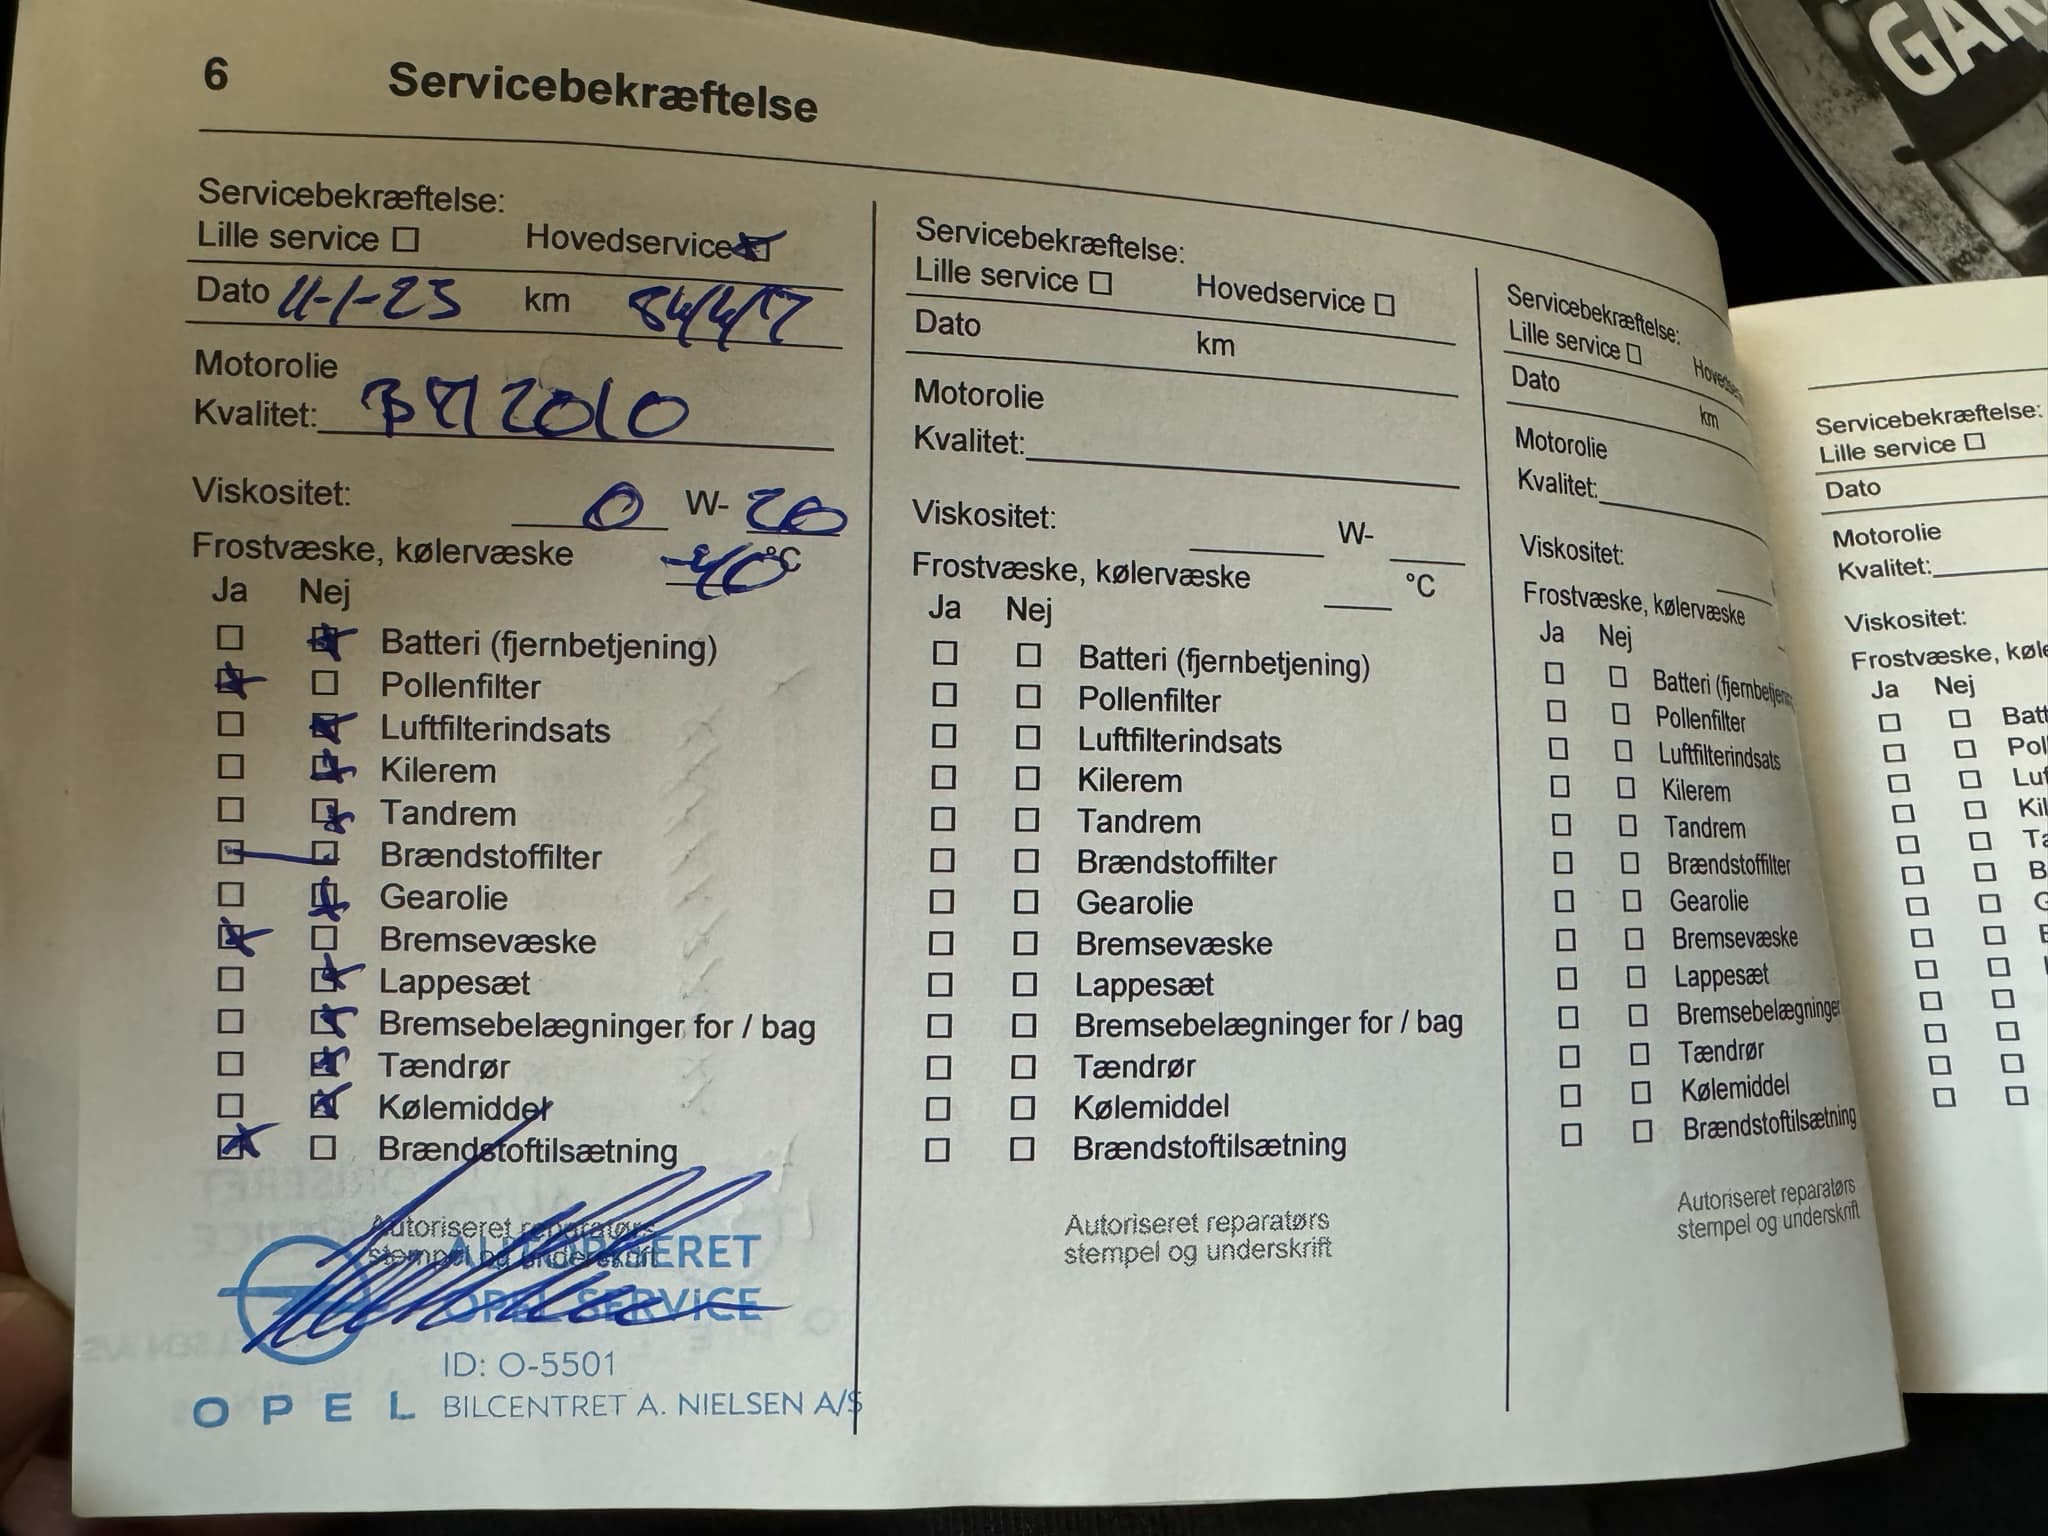 6 Servicebekræftelse
Servicebekræftelse:
Lille service Hovedservice
Dato 11-1-23 km
Motorolie
Kvalitet: 2010
Viskositet: 0 W- 20
Frostvæske, kølervæske -40°C
Ja Nej
Batteri (fjernbetjening)
Pollenfilter
Luftfilterindsats
Kilerem
Tandrem
Brændstoffilter
Gearolie
Bremsevæske
Lappesæt
Bremsebelægninger for / bag
Tændrør
Kølemiddel
Brændstoftilsætning
Autoriseret reparatørs
stempel og underskrift
AUTORISERET
OPEL SERVICE
ID: O-5501
OPEL BILCENTRET A. NIELSEN A/S
Servicebekræftelse:
Lille service Hovedservice
Dato km
Motorolie
Kvalitet:
Viskositet: W-
Frostvæske, kølervæske °C
Ja Nej
Batteri (fjernbetjening)
Pollenfilter
Luftfilterindsats
Kilerem
Tandrem
Brændstoffilter
Gearolie
Bremsevæske
Lappesæt
Bremsebelægninger for / bag
Tændrør
Kølemiddel
Brændstoftilsætning
Autoriseret reparatørs
stempel og underskrift
Servicebekræftelse:
Lille service
Dato km
Motorolie
Kvalitet:
Viskositet:
Frostvæske, kølervæske
Ja Nej
Batteri (fjernbetjen
Pollenfilter
Luftfilterindsats
Kilerem
Tandrem
Brændstoffilter
Gearolie
Bremsevæske
Lappesæt
Bremsebelægninger
Tændrør
Kølemiddel
Brændstoftilsætning
Autoriseret reparatørs
stempel og underskrift
Servicebekræftelse:
Lille service
Dato
Motorolie
Kvalitet:
Viskositet:
Frostvæske, køle
Ja Nej
Batt
Pol
Luf
Kil
GAR